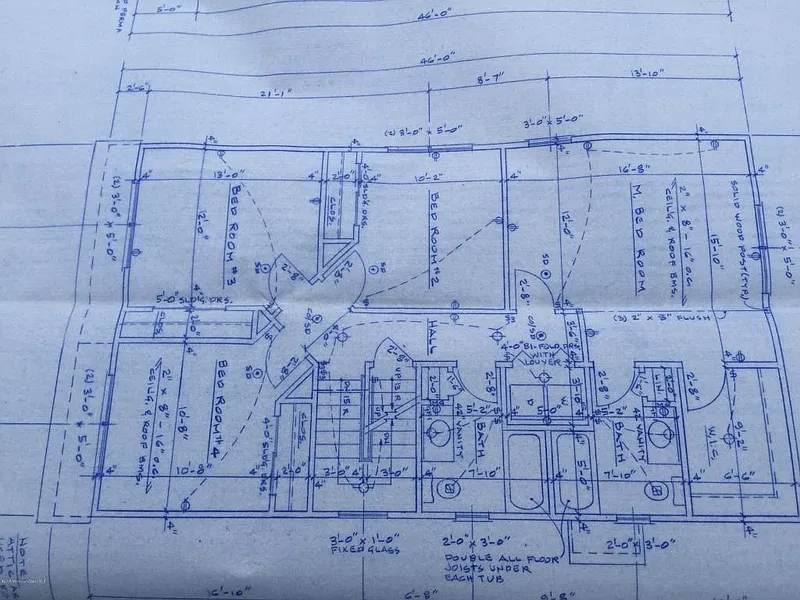 5'-0"
46'-0"
46'-0"
2'-6"
21'-1"
8'-7"
13'-10"
(2) 3'-0" x 5'-0"
3'-0" x 5'-0"
4"
13'-0"
2'-0"
10'-2"
16'-8"
4"
(2) 3'-0" x 5'-0"
12'-0"
BED ROOM #3
CLOS.
BED ROOM #2
12'-0"
M. BED ROOM
2" x 8" - 16" O.C.
CEIL'G. & ROOF BMS.
15'-10"
SOLID WOOD POST (TYP.)
2'-8"
2'-8"
SD
2'-8"
5'-0" SLD'G. DRS.
CLOS.
2'-0"
CO/SD
HALL
CO/SD
(3) 2" x 8" FLUSH
4'-0" BI-FOLD DRS.
WITH
LOUVER
(2) 3'-0" x 5'-0"
2" x 8" - 16" O.C.
CEIL'G. & ROOF BMS.
10'-8"
BED ROOM #4
SD
2'-8"
4'-0" SLD'G. DRS.
CLOS.
UP 13 R
DN
2'-8"
2'-8"
2'-8"
LIN.
5'-2"
5'-0"
5'-2"
VANITY
BATH
BATH
VANITY
W.I.C.
9'-2"
10'-8"
2'-0"
3'-0"
4"
3'-0"
7'-10"
5'-0"
7'-10"
6'-6"
3'-0" x 1'-0"
FIXED GLASS
2'-0" x 3'-0"
2'-0" x 3'-0"
DOUBLE ALL FLOOR
JOISTS UNDER
EACH TUB
NOTE
16'-10"
6'-8"
9'-8"